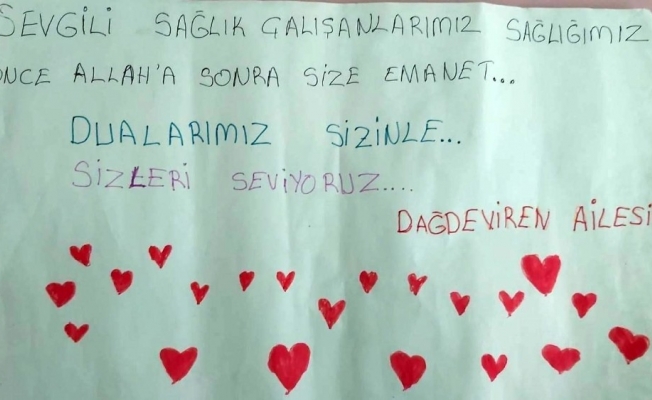 SEVGİLİ SAĞLIK ÇALIŞANLARIMIZ SAĞLIĞIMIZ
ÖNCE ALLAH'A SONRA SİZE EMANET...
DUALARIMIZ SİZİNLE...
SİZLERİ SEVİYORUZ....
DAĞDEVİREN AİLESİ